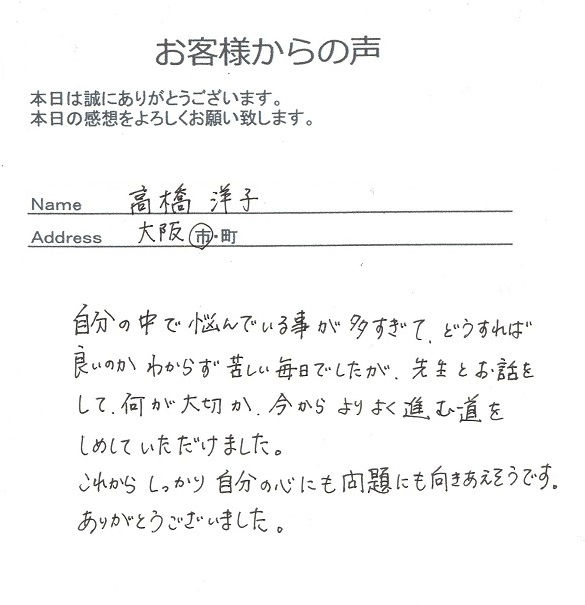 お客様からの声
本日は誠にありがとうございます。
本日の感想をよろしくお願い致します。
Name 高橋 洋子
Address 大阪 市・町
自分の中で悩んでいる事が多すぎて、どうすれば
良いのかわからず苦しい毎日でしたが、先生とお話を
して、何が大切か、今からよりよく進む道を
しめしていただけました。
これからしっかり自分の心にも問題にも向きあえそうです。
ありがとうございました。